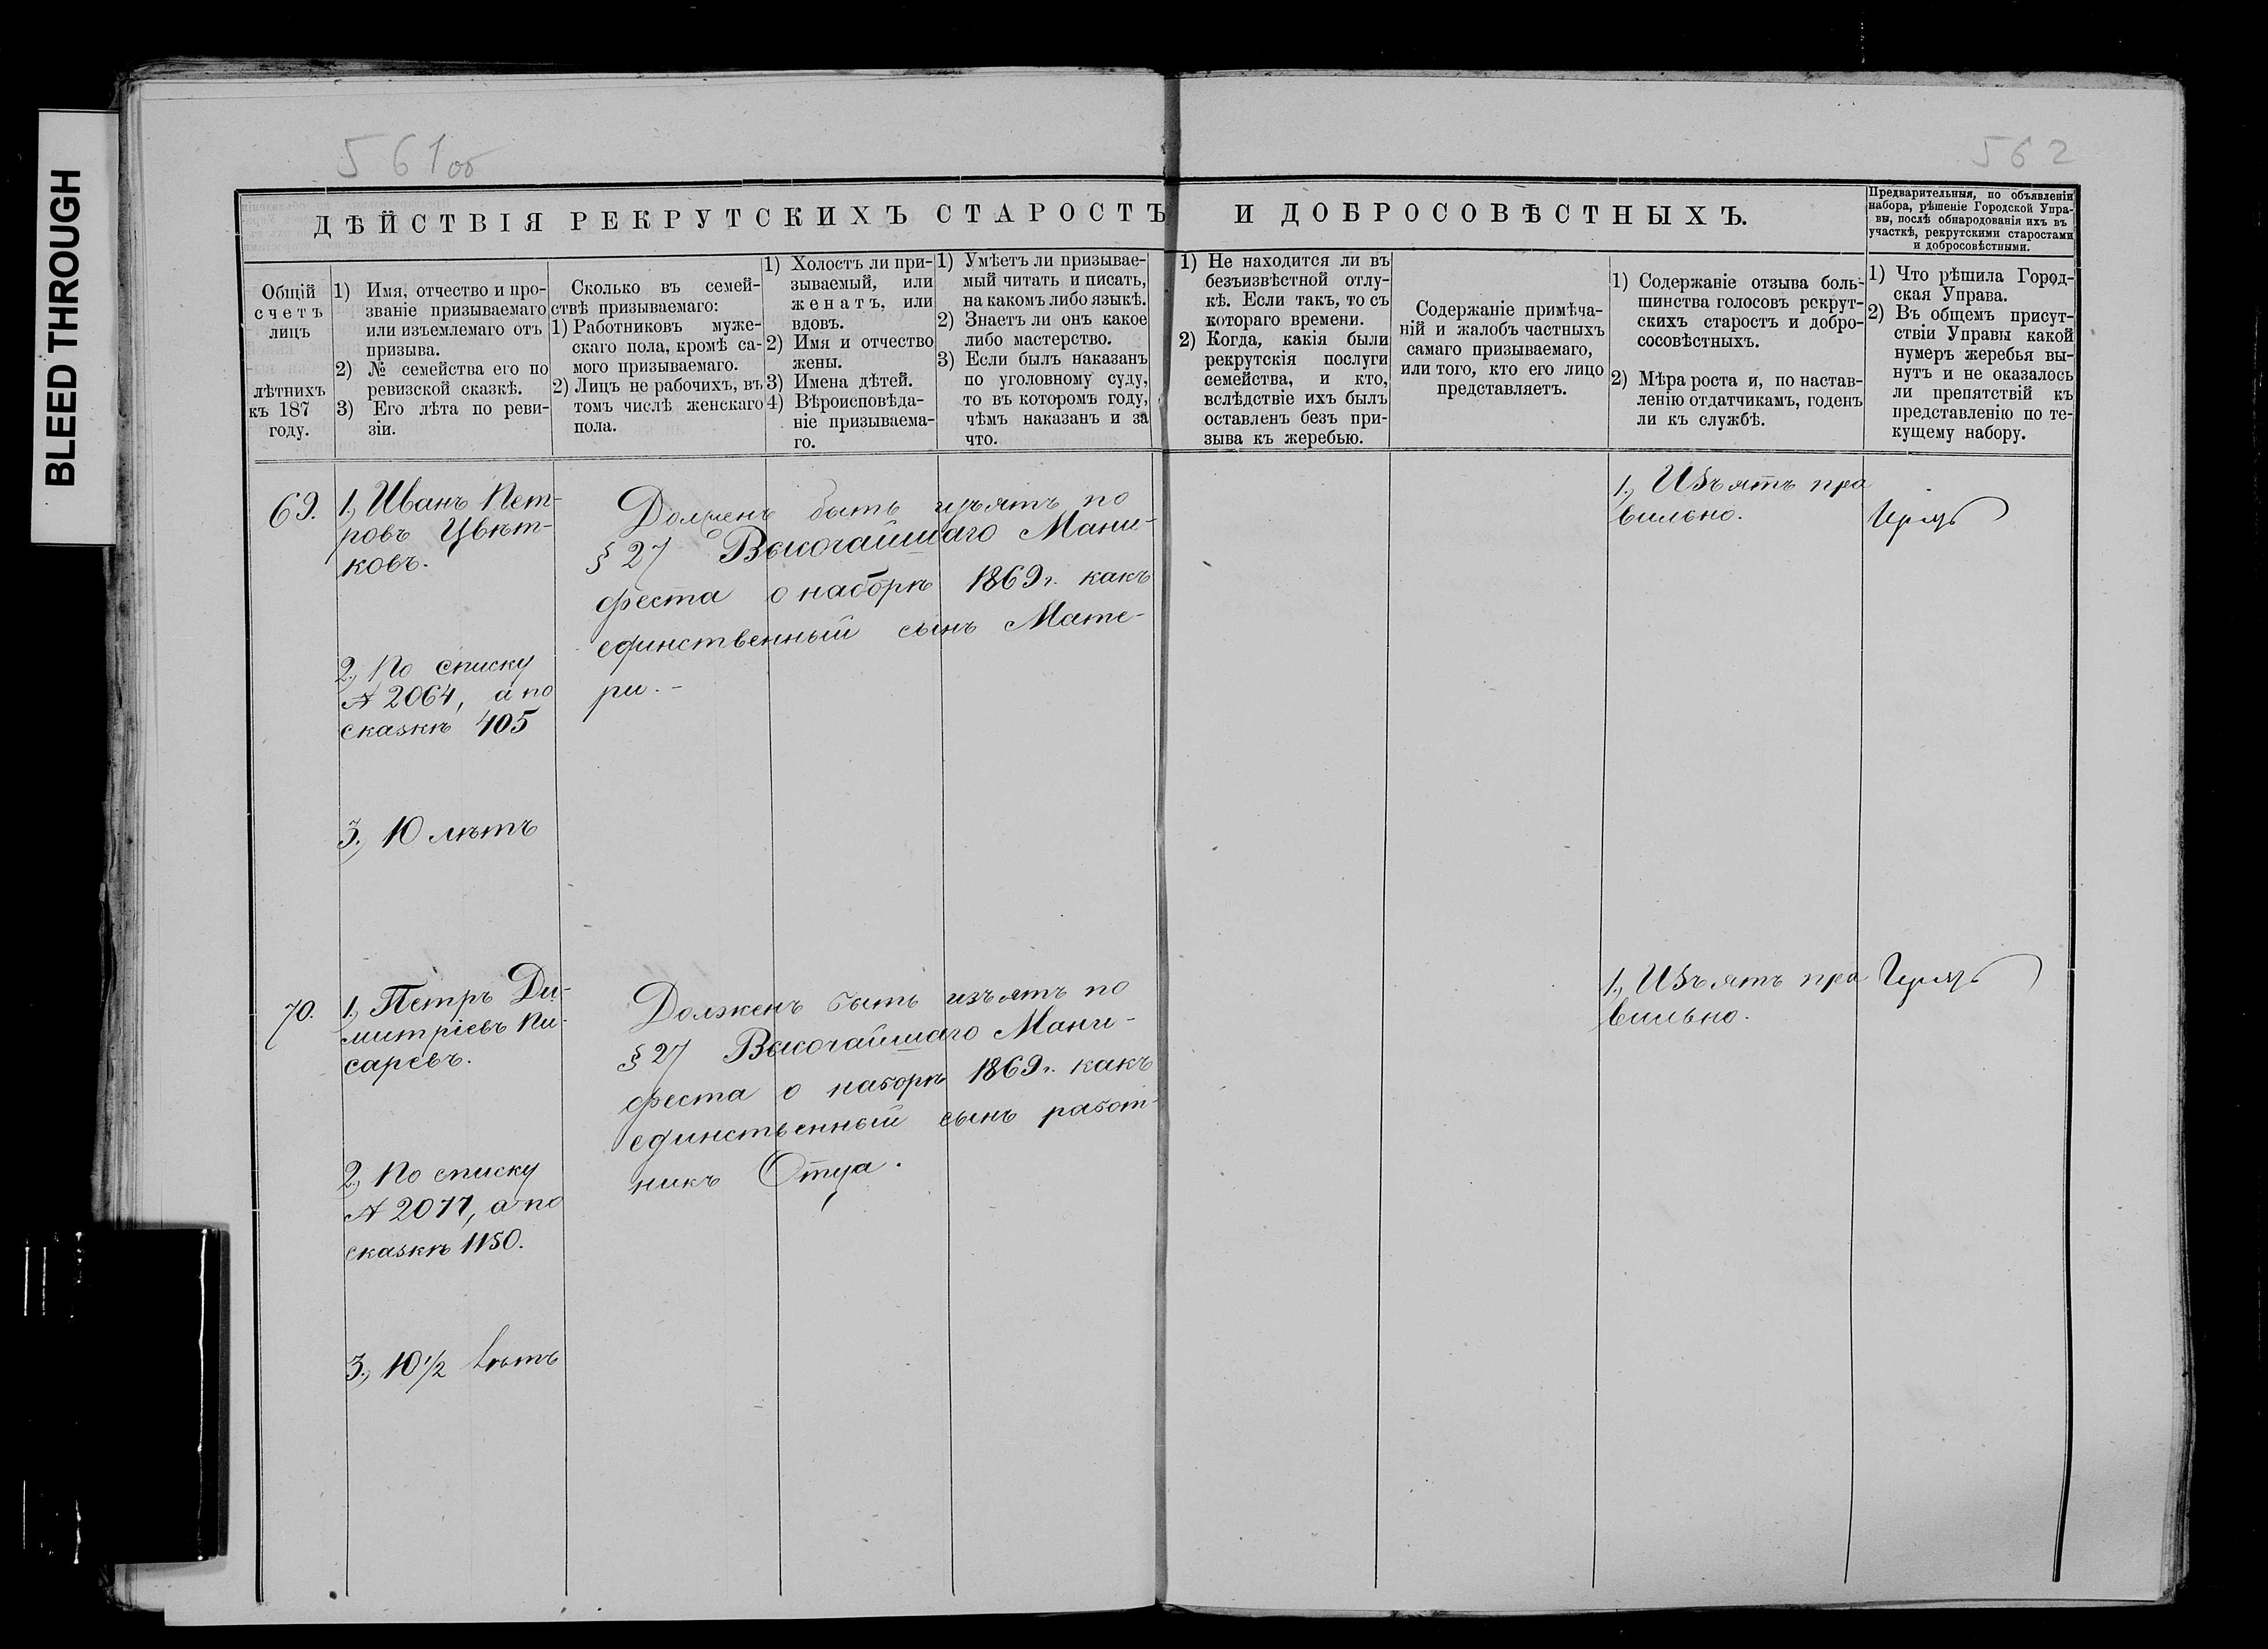 BLEED THROUGH
561об
562
ДѢЙСТВІЯ РЕКРУТСКИХЪ СТАРОСТЪ И ДОБРОСОВѢСТНЫХЪ.
Предварительныя, по объявленіи
набора, рѣшеніе Городской Упра-
вы, послѣ обнародованія ихъ въ
участкѣ, рекрутскими старостами
и добросовѣстными.
Общій
счетъ
лицъ
лѣтнихъ
къ 187
году.
1) Имя, отчество и про-
званіе призываемаго
или изъемлемаго отъ
призыва.
2) № семейства его по
ревизской сказкѣ.
3) Его лѣта по реви-
зіи.
Сколько въ семей-
ствѣ призываемаго:
1) Работниковъ муже-
скаго пола, кромѣ са-
мого призываемаго.
2) Лицъ не рабочихъ, въ
томъ числѣ женскаго
пола.
1) Холостъ ли при-
зываемый, или
женатъ, или
вдовъ.
2) Имя и отчество
жены.
3) Имена дѣтей.
4) Вѣроисповѣда-
ніе призываема-
го.
1) Умѣетъ ли призывае-
мый читать и писать,
на какомъ либо языкѣ.
2) Знаетъ ли онъ какое
либо мастерство.
3) Если былъ наказанъ
по уголовному суду,
то въ которомъ году,
чѣмъ наказанъ и за
что.
1) Не находится ли въ
безъизвѣстной отлу-
кѣ. Если такъ, то съ
котораго времени.
2) Когда, какія были
рекрутскія послуги
семейства, и кто,
вслѣдствіе ихъ былъ
оставленъ безъ при-
зыва къ жеребью.
Содержаніе примѣча-
ній и жалобъ частныхъ
самаго призываемаго,
или того, кто его лицо
представляетъ.
1) Содержаніе отзыва боль-
шинства голосовъ рекрут-
скихъ старостъ и добро-
сосовѣстныхъ.
2) Мѣра роста и, по настав-
ленію отдатчикамъ, годенъ
ли къ службѣ.
1) Что рѣшила Город-
ская Управа.
2) Въ общемъ присут-
ствіи Управы какой
нумеръ жеребья вы-
нутъ и не оказалось
ли препятствій къ
представленію по те-
кущему набору.
69.
1., Иванъ Пет-
ровъ Цвѣт-
ковъ.
2., По списку
№ 2064, а по
сказкѣ 405
3., 10 лѣтъ
Долженъ быть изъятъ по
§ 27 Высочайшаго Мани-
феста о наборѣ 1869 г. какъ
единственный сынъ Мате-
ри. -
1., Изъятъ пра
вильно.
70.
1., Петръ Ди-
митріевъ Пи-
саревъ.
2., По списку
№ 2077, а по
сказкѣ 1150.
3., 10 1/2 лѣтъ
Долженъ быть изъятъ по
§ 27 Высочайшаго Мани-
феста о наборѣ 1869 г. какъ
единственный сынъ работ-
никъ Отца.
1., Изъятъ пра
вильно.